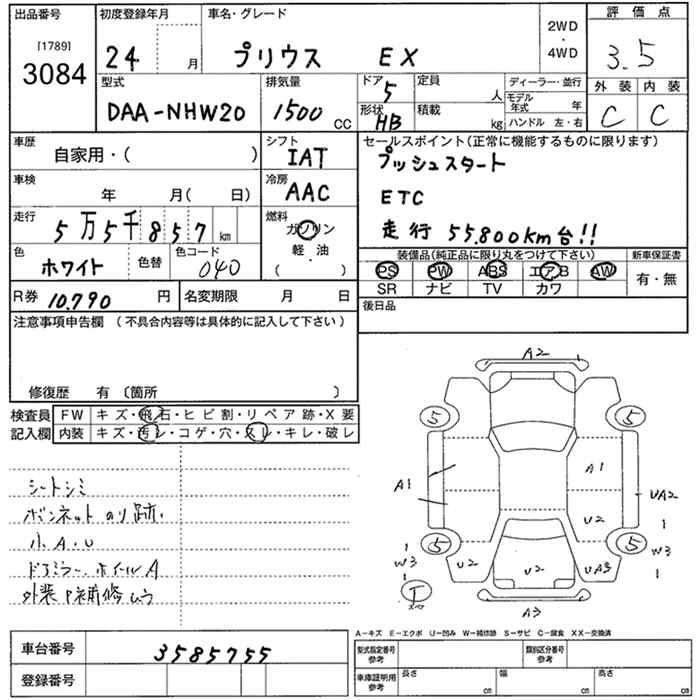 出品番号 初度登録年月 車名・グレード 2WD・4WD 評価点
[1789] 3084 24 月 プリウス EX 3.5
型式 排気量 ドア 5 定員 人 ディーラー・並行 外装 内装
DAA-NHW20 1500 CC 形状 HB 積載 kg モデル年式 年 C C
ハンドル 左・右
車歴 自家用・( ) シフト IAT セールスポイント(正常に機能するものに限ります)
プッシュスタート
車検 年 月( 日) 冷房 AAC ETC
走行 5万5千857 km 燃料 ガソリン 軽・油 ( ) 走行 55.800km台!!
色 ホワイト 色替 色コード 040 装備品(純正品に限り丸をつけて下さい) 新車保証書
PS PW ABS エアB AW 有・無
SR ナビ TV カワ
R券 10.790 円 名変期限 月 日 後日品
注意事項申告欄 (不具合内容等は具体的に記入して下さい)
修復歴 有 〔箇所 〕
検査員 FW キズ・飛石・ヒビ割・リペア跡・X要
記入欄 内装 キズ・汚レ・コゲ・穴・スレ・キレ・破レ
シートシミ
ボンネットのり跡
小A・U
ドアミラー ホイールA
外装P補修ムラ
A2
5 5
A1 A1 UA2
U2
5 5
W3 U2 U2 UA3 W3
T
A3
A-キズ E-エクボ U-凹み W-補修跡 S-サビ C-腐食 XX-交換済
車台番号 3585755 型式指定番号 参考 類別区分番号 参考
登録番号 車庫証明用 参考 長さ cm 幅 cm 高さ cm